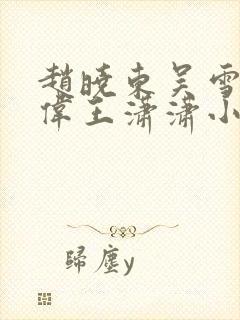 趙曉東吳雪
偉王瀟瀟小
歸塵y